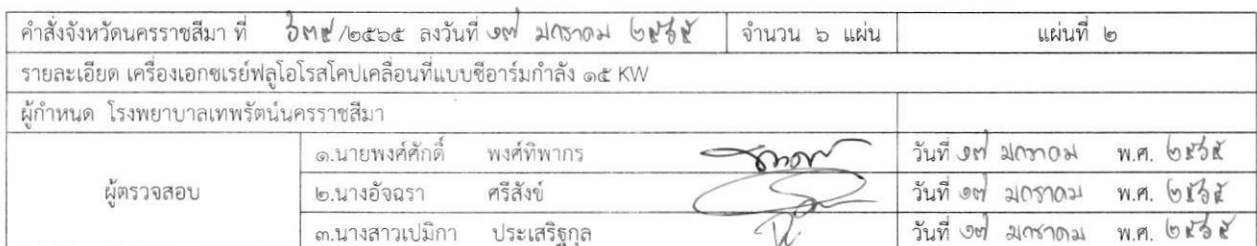 คำสั่งจังหวัดนครราชสีมา ที่ ๖๓๙/๒๕๖๕ ลงวันที่ ๑๗ มกราคม ๒๕๖๕ จำนวน ๖ แผ่น แผ่นที่ ๒
รายละเอียด เครื่องเอกซเรย์ฟลูโอโรสโคปเคลื่อนที่แบบซีอาร์มกำลัง ๑๕ KW
ผู้กำหนด โรงพยาบาลเทพรัตน์นครราชสีมา
๑.นายพงศ์ศักดิ์ พงศ์ทิพากร วันที่ ๑๗ มกราคม พ.ศ. ๒๕๖๕
ผู้ตรวจสอบ ๒.นางอัจฉรา ศรีสังข์ วันที่ ๑๗ มกราคม พ.ศ. ๒๕๖๕
๓.นางสาวเปมิกา ประเสริฐกุล วันที่ ๑๗ มกราคม พ.ศ. ๒๕๖๕